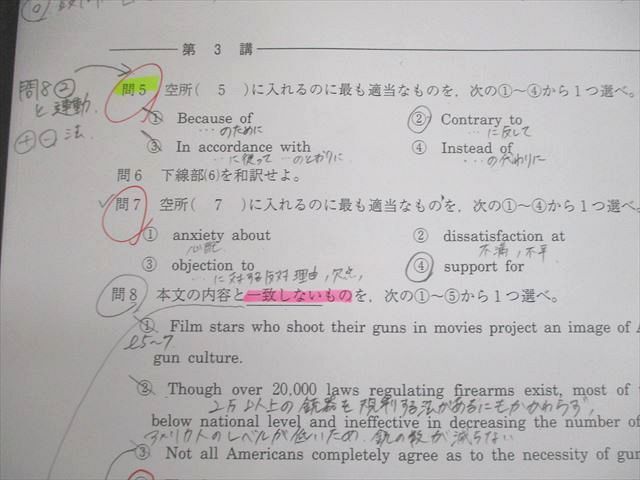 第 3 講
問8②
と連動
⊕⊖法
問5 空所( 5 )に入れるのに最も適当なものを，次の①～④から1つ選べ。
① Because of
…のために
② Contrary to
…に反して
③ In accordance with
…に従って …のとおりに
④ Instead of
…の代わりに
問6 下線部(6)を和訳せよ。
問7 空所( 7 )に入れるのに最も適当なものを，次の①～④から1つ選べ。
① anxiety about
心配
② dissatisfaction at
不満，不平
③ objection to
…に対する反対理由，欠点，
④ support for
問8 本文の内容と一致しないものを，次の①～⑤から1つ選べ。
① Film stars who shoot their guns in movies project an image of A
ℓ5~7
gun culture.
② Though over 20,000 laws regulating firearms exist, most of
2万以上の銃器を規制する法があるにもかかわらず，
below national level and ineffective in decreasing the number of
アメリカ人のレベルが低いため，銃の数が減らない
③ Not all Americans completely agree as to the necessity of gun